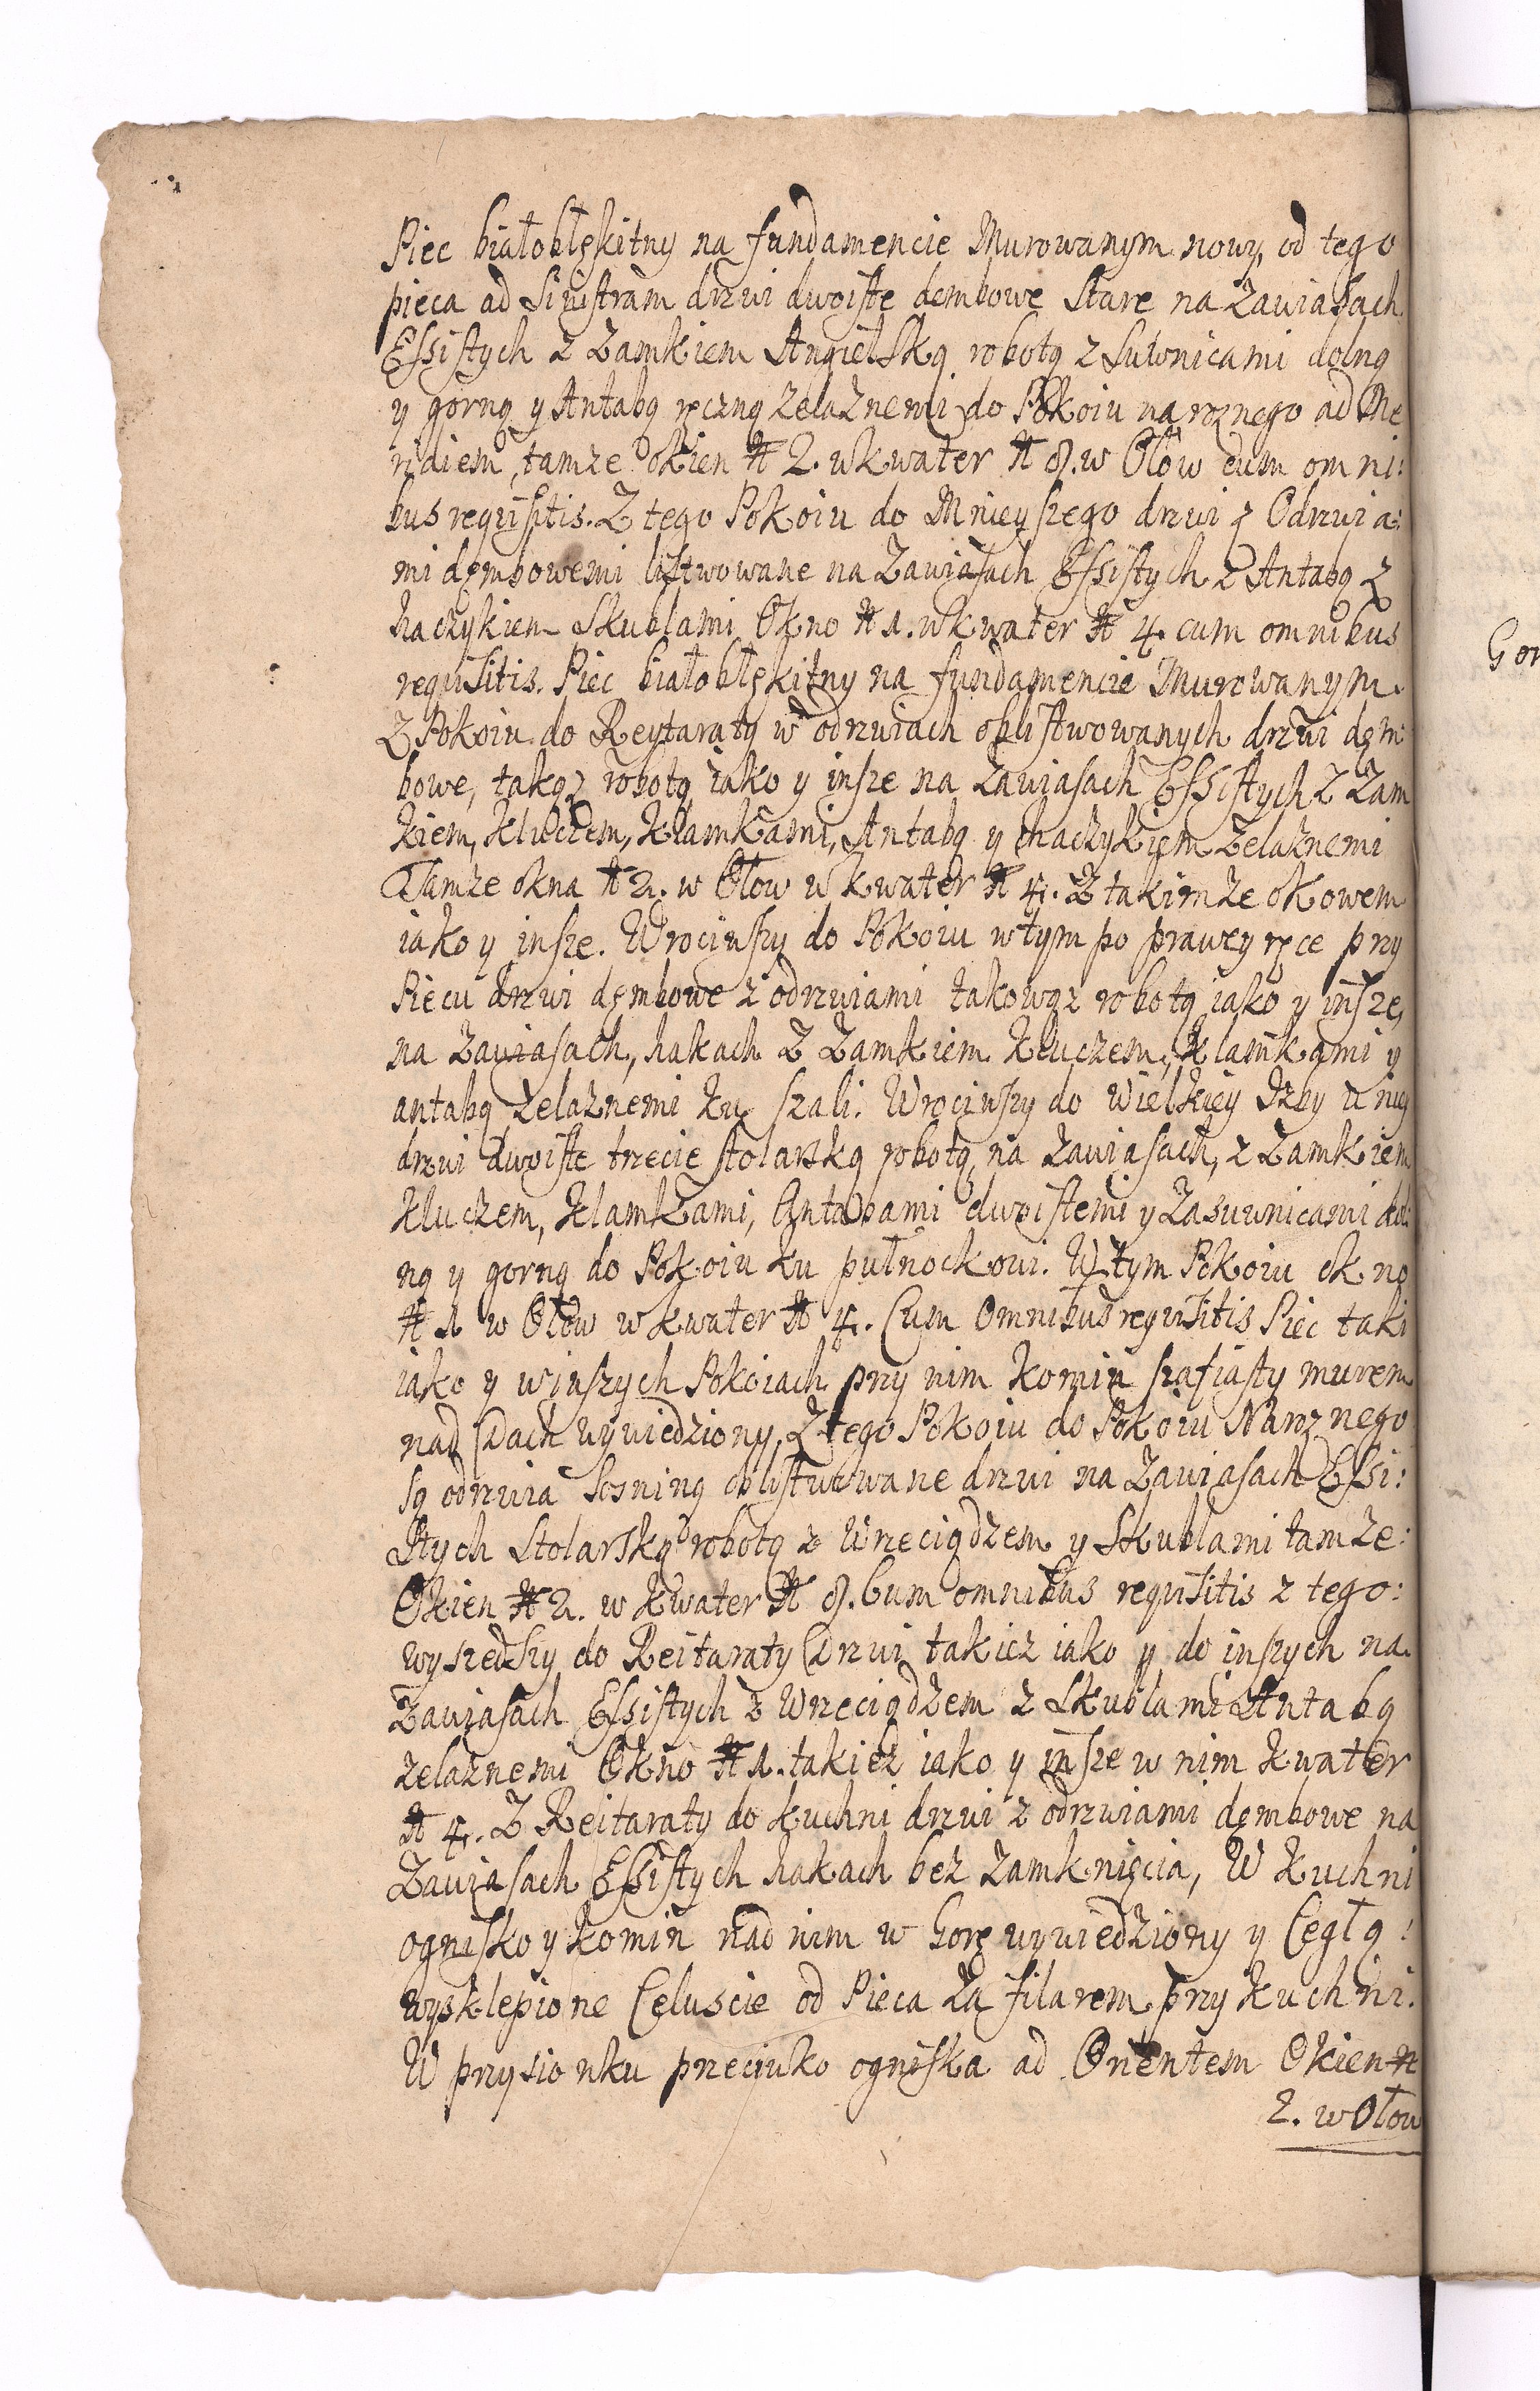 Piec białobłękitny na fundamencie Murowanym nowy, od tego
pieca ad Sinistram drzwi dwoiste dembowe Stare na Zawiasach
Essistych z Zamkiem Angielską robotą z Suwnicami dolną
y gorną y Antabą ręczną Zelaznemi do Pokoiu naroznego ad Me
ridiem, tamze okien N 2. w kwater N 8. w Ołow cum omni:
bus requisitis. Z tego Pokoiu do Mnieyszego drzwi z Odrzwia:
mi dembowemi listwowane na Zawiasach Essistych z Antabą z
haczykiem Skublami Okno N 1. w kwater N 4. cum omnibus
requisitis. Piec białobłękitny na fundamencie Murowanym.
Z Pokoiu do Reytaraty w odrzwiach oblistwowanych drzwi dęm
bowe, takąz robotą iako y insze na Zawiasach Essistych z Zam
kiem, Kluczem, Klamkami, Antabą y haczykiem Zelaznemi
Tamze okna N 2. w Ołow w kwater N 4. Z takimze okowem
iako y insze. Wrociwszy do Pokoiu w tym po prawey ręce przy
Piecu drzwi dęmbowe z odrzwiami takowąz robotą iako y insze,
na Zawiasach, hakach z Zamkiem Kluczem, Klamkami y
antabą Zelaznemi ku szali. Wrociwszy do Wielkiey Izby u niey
drzwi dwoiste trzecie stolarską robotą, na Zawiasach, z Zamkiem
Kluczem, Klamkami, Antabami dwoistemi y Zasuwnicami dol:
ną y gorną do Pokoiu ku pułnockowi. W tym Pokoiu okno
N 1 w Ołow w kwater N 4. Cum Omnibus requisitis Piec taki
iako y w inszych Pokoiach przy nim komin szafiasty murem
nad Dach wywiedziony. Z tego Pokoiu do Pokoiu Naroznego
są odrzwia Sosniną oblistwowane drzwi na Zawiasach Essi:
stych Stolarską robotą z Wrzeciądzem y Skublami tamze:
Okien N 2. w Kwater N 8. Cum omnibus requisitis z tego:
wyszedszy do Reitaraty Drzwi takiez iako y do inszych na
Zawiasach Essistych z Wrzeciądzem z Skublami z Antabą
zelaznemi Okno N 1. takiez iako y insze w nim kwater
N 4. Z Reitaraty do kuchni drzwi z odrzwiami dęmbowe na
Zawiasach Essistych hakach bez Zamknięcia, W Kuchni
ognisko y komin nad nim w Gorę wywiedziony y Cegłą:
wysklepione Celuscie od Pieca Za filarem przy kuchni.
W przysionku przeciwko ogniska ad Orientem Okien N
2. w Ołow
Gor